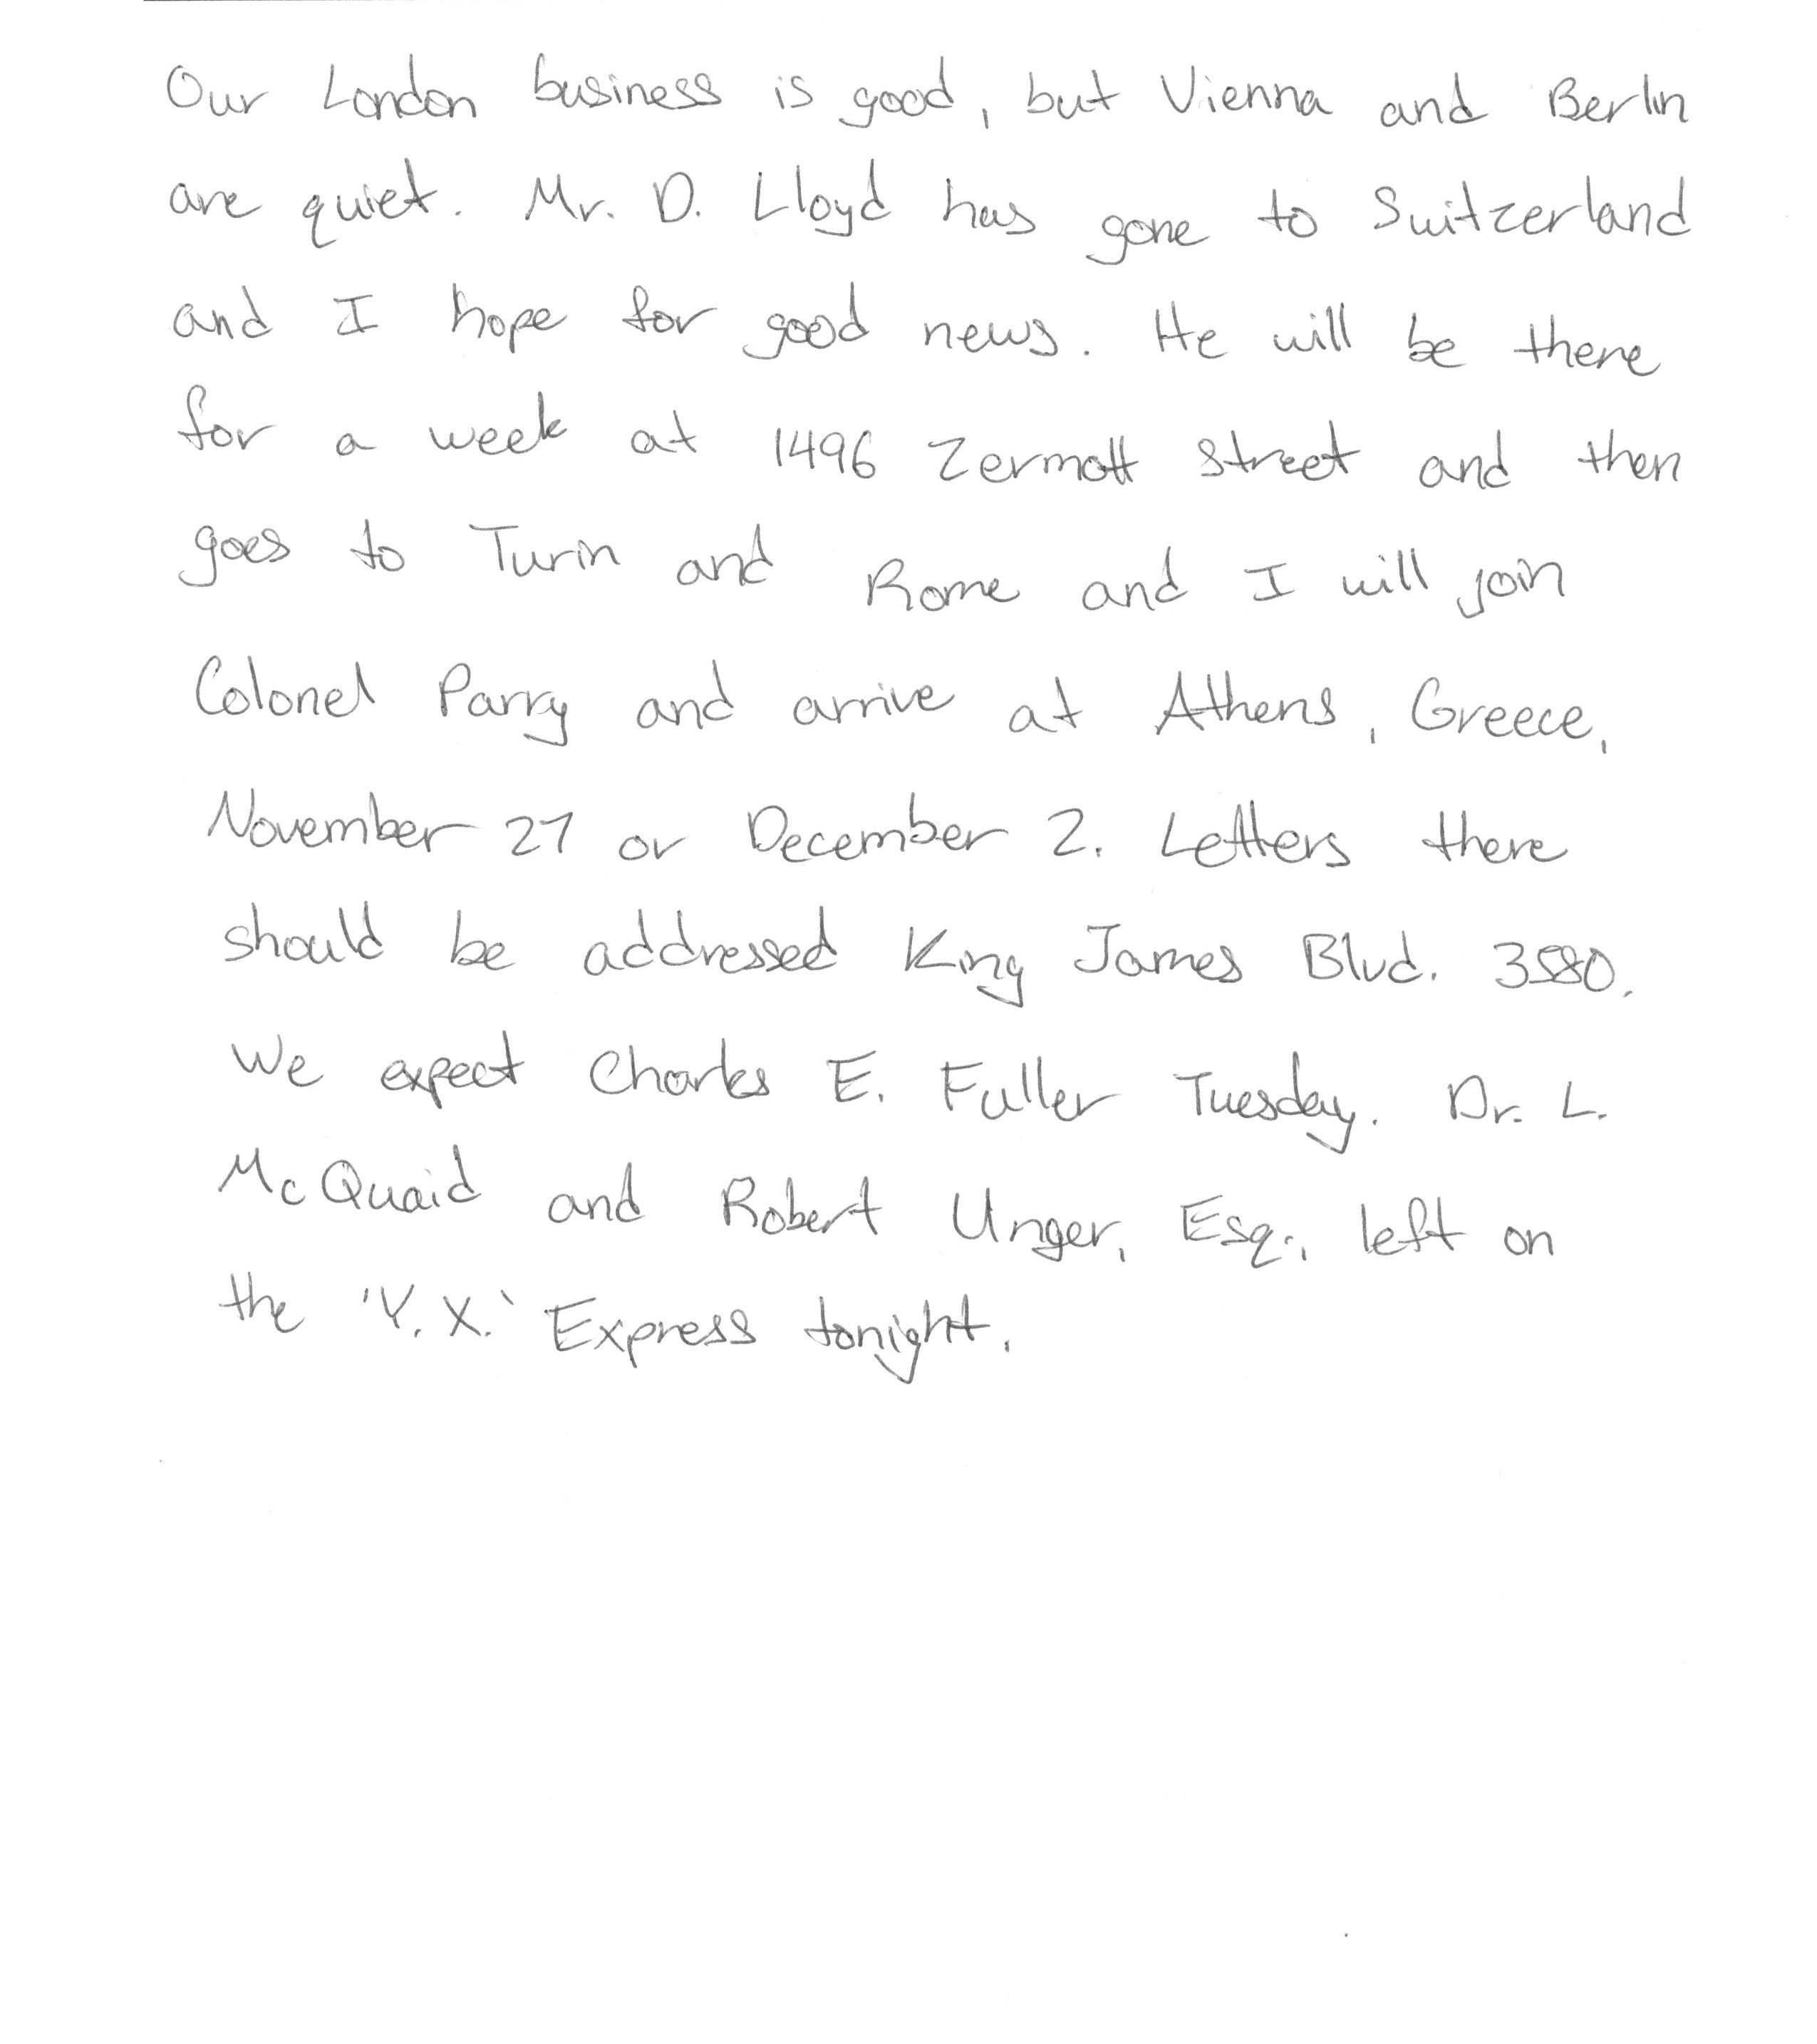 Our London business is good, but Vienna and Berlin
are quiet. Mr. D. Lloyd has gone to Switzerland
and I hope for good news. He will be there
for a week at 1496 Zermott street and then
goes to Turin and Rome and I will join
Colonel Parry and arrive at Athens, Greece,
November 27 or December 2. Letters there
should be addressed King James Blvd. 3580.
We expect Charles E. Fuller Tuesday. Dr. L.
McQuaid and Robert Unger, Esq., left on
the 'Y.X.' Express tonight.